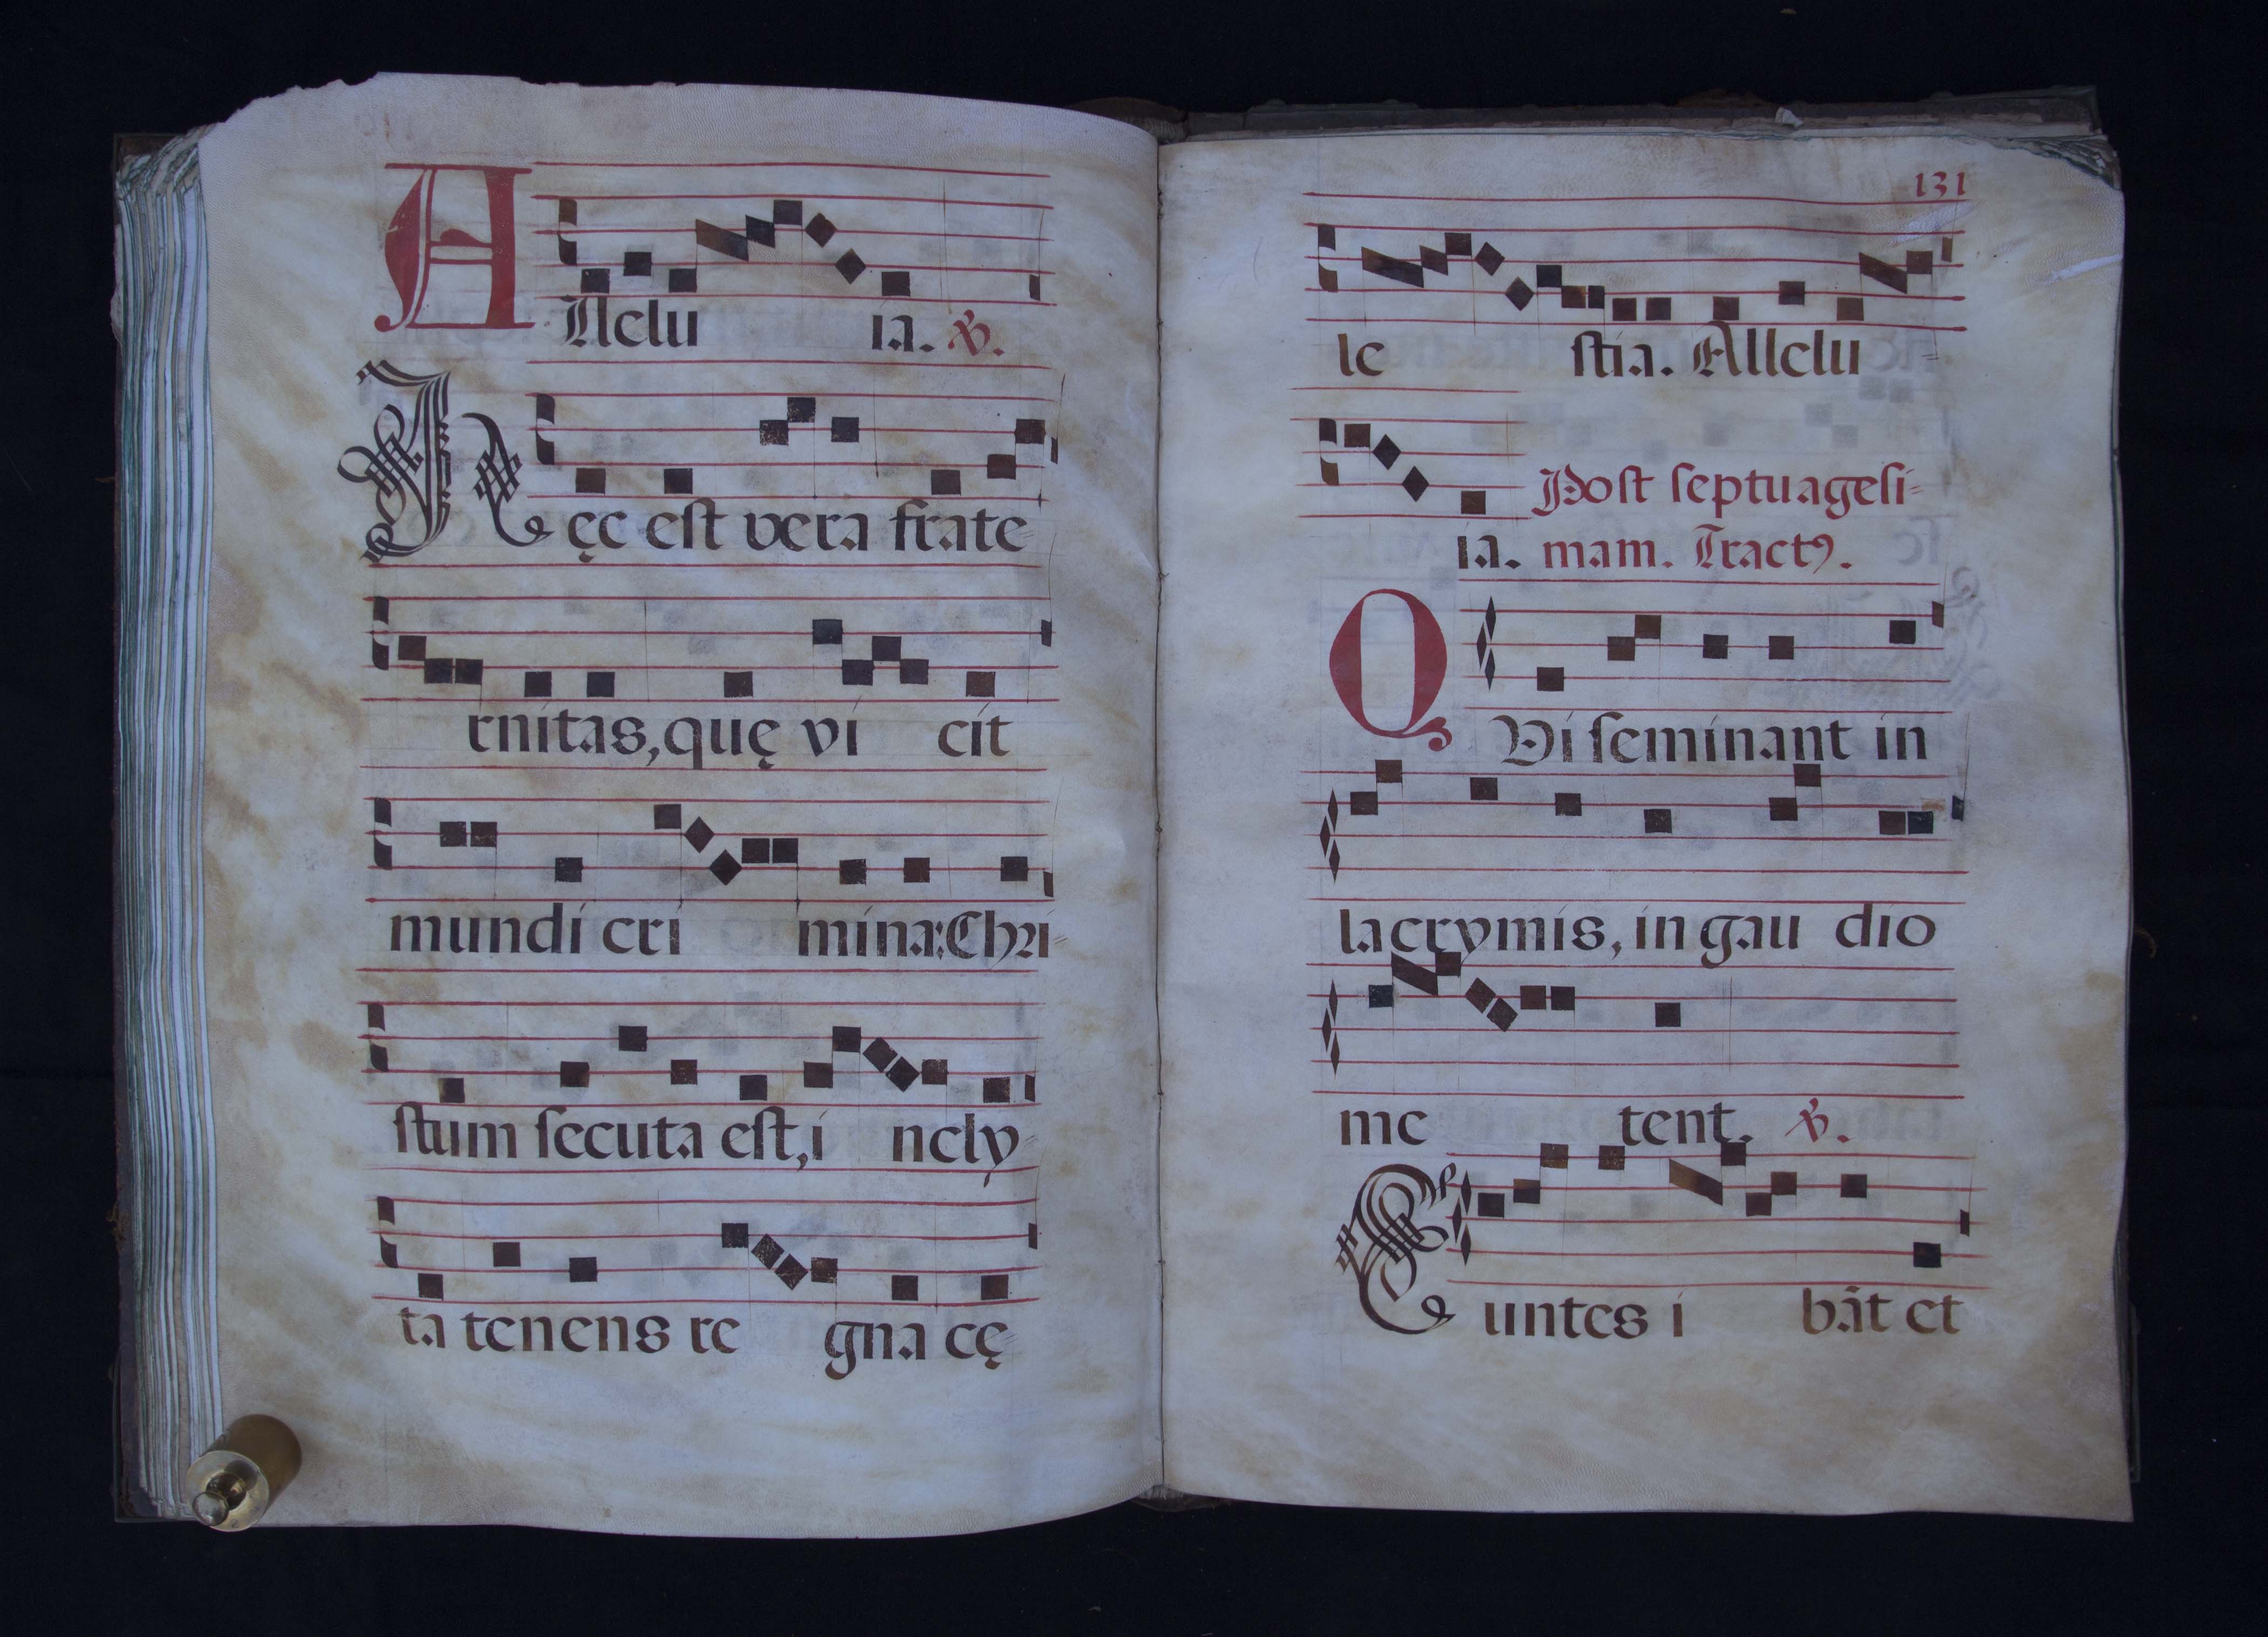 Allelu ia. ℣.
Hęc est vera frate
rnitas, quę vi cit
mundi cri mina: Chri
stum secuta est, i ncly
ta tenens re gna cę
131
le stia. Allelu
ia. Post septuagesi
mam. Tractꝰ.
QVi seminant in
lacrymis, in gau dio
me tent. ℣.
Euntes i bāt et